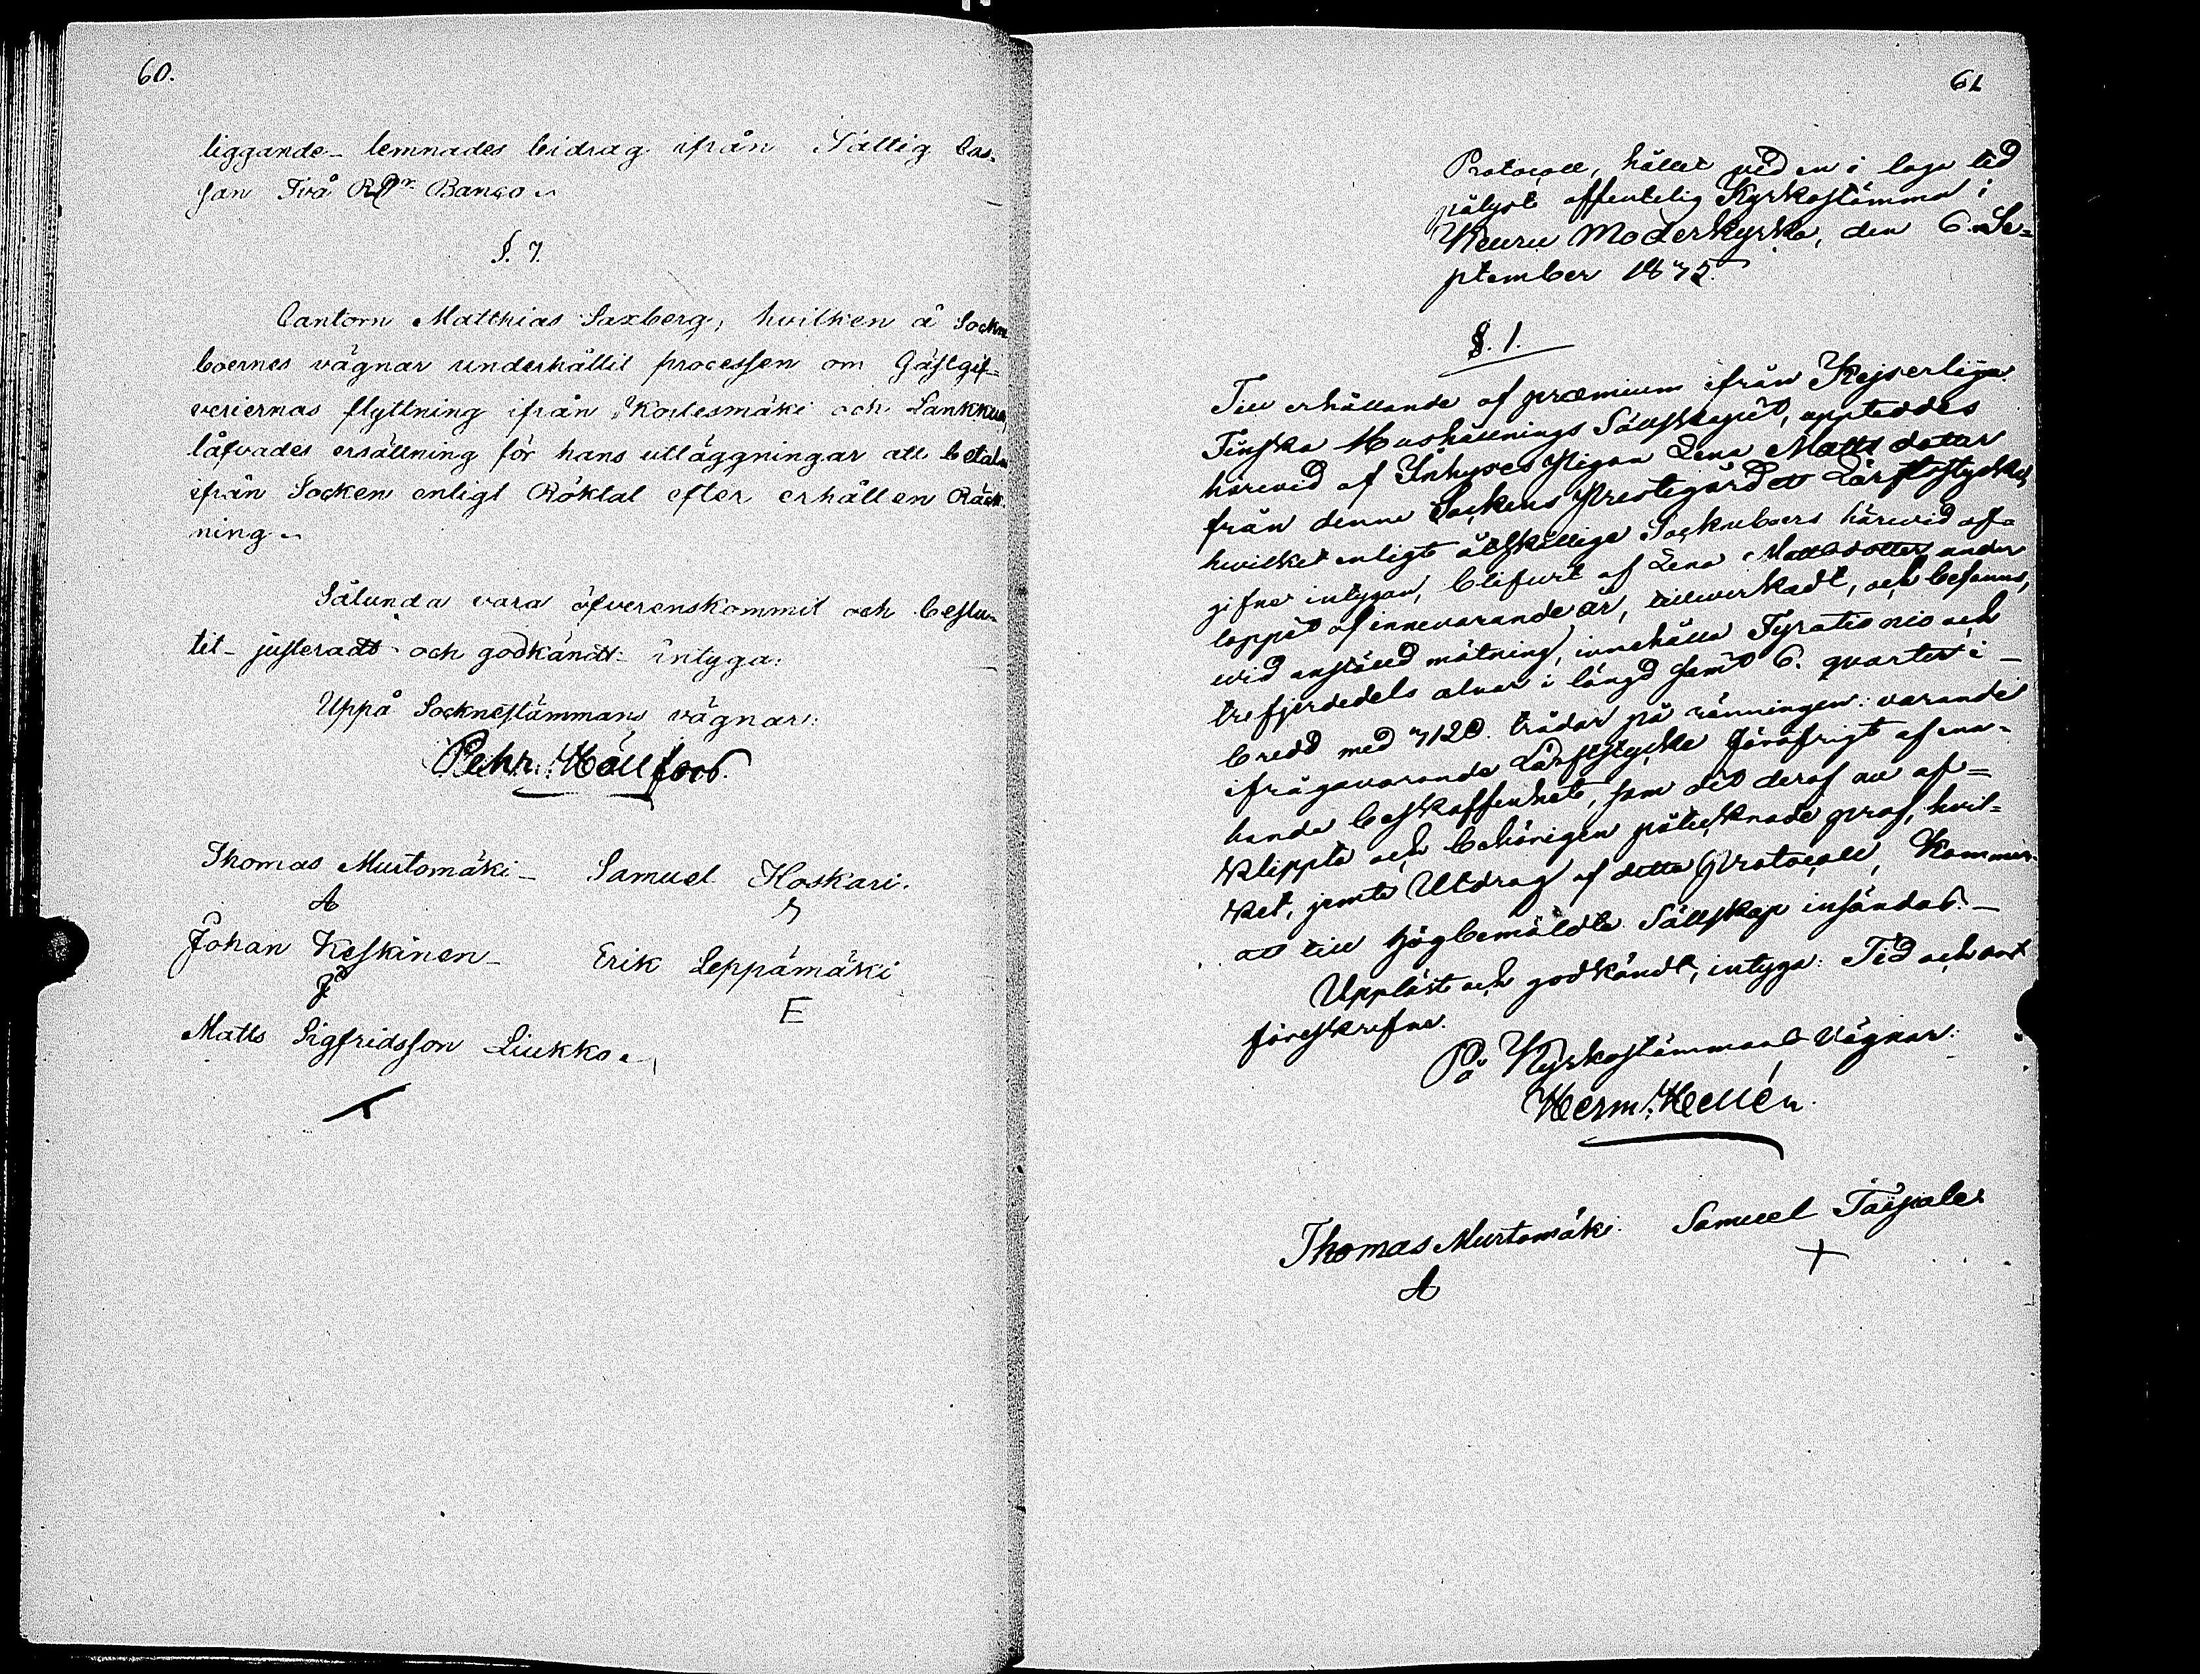 60.
liggande - lemnades bidrag ifrån Fattig Cas-
san Två RDr Banco.
§. 7.
Cantorn Matthias Saxberg, hvilken å Sockne
boernes vägnar underhållit processen om Gästgif-
veriernas flyttning ifrån Kortesmäki och Lankku,
låfvades ersättning för hans utläggningar att betalas
ifrån Socken enligt Röktal efter erhållen Räck-
ning.
Sålunda vara öfverenskommit och beslu-
tit - justeradt och godkändt - intyga:
Uppå Socknestämmans vägnar:
Pehr. Hällfors.
Thomas Murtomäki - Samuel Hoskari.
Johan Keskinen - Erik Leppämäki
E
Matts Sigfridsson Liukko.
61
Protocoll, hållet vid en i laga tid
pålyst offentelig Kyrkostämma i
Keuru Moderkyrka, den 6. Se-
ptember 1835.
§. 1.
Till erhållande af præmium ifrån Kejserliga
Finska Hushållnings Sällskapet, uppteddes
härvid af Inhyses Pigan Lena Matts dotter
från denne Sockens Prestegård ett Lärftstycke,
hvilket enligt åtskillige Sockneboers härvid af-
gifne intygan, blifvit af Lena Mattsdotter under
loppet af innevarande år, tillverkadt, och befanns,
vid anställd mätning, innehålla Fyratio nio och
trefjerdedels alnar i längd samt 6. qvarter i
bredd med 7120. trådar på ränningen: varande
ifrågavarande Lärftstycke föröfrigt af ena-
handa beskaffenhet, som det deraf nu af-
klippte och behörigen påtecknade prof, hvil-
ket, jemte Utdrag af detta Protocoll, kommer
att till högbemäldte Sällskap insändas. -
Uppläst och godkändt, intyga: Tid och ort
föreskrifne.
På Kyrkostämmans Vägnar:
Herm. Hellén
Thomas Murtomäki. Samuel Taipale